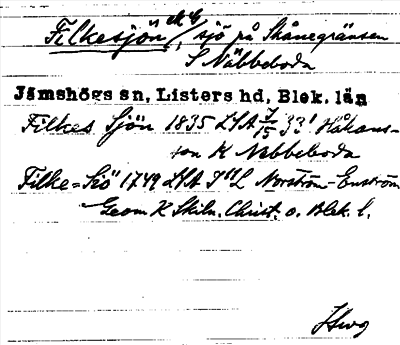 Filkesjön, sjö på Skånegränsen
S Näbbeboda
Jämshögs sn, Listers hd, Blek. län
Filkes Sjön 1835 LSA 7/15 33¹ Håkans-
son K Nabbeboda
Filke=Siö 1749 LSA Norström-Enström
Geom K Skiln. Christ. o. Blek. l.